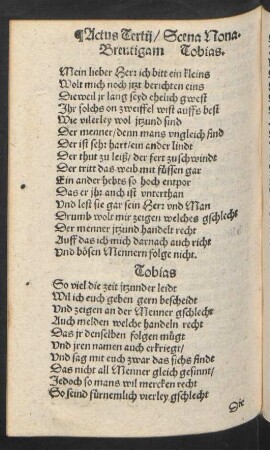 ¶Actus Tertij / Scena Nona.
Breutigam Tobias.
Mein lieber Herr ich bitt ein kleins
Wolt mich noch jtzt berichten eins
Dieweil jr lang seyd ehrlich gwest
Jhr solchs on zweiffel wist auffs best
Wie vilerley wol jtzund sind
Der menner / denn mans vngleich find
Der ist sehr hart / ein ander lindt
Der thut zu leiß / der fert zu schwindt
Der tritt das weib mit füssen gar
Ein ander hebts so hoch entpor
Das er jhr auch ist vnterthan
Vnd lest sie gar sein Herr vnd Man
Drumb wolt mir zeigen welches gschlecht
Der menner jtzund handelt recht
Auff das ich mich darnach auch richt
Vnd bösen Mennern folge nicht.
Tobias
So viel die zeit jtzunder leidt
Wil ich euch geben gern bescheidt
Vnd zeigen an der Menner gschlecht
Auch melden welche handeln recht
Das jr denselben folgen mügt
Vnd jren namen auch erkriegt /
Vnd sag mit euch zwar das sichs findt
Das nicht all Menner gleich gesinnt /
Jedoch so mans wil mercken recht
So seind fürnemlich vierley gschlecht
Die